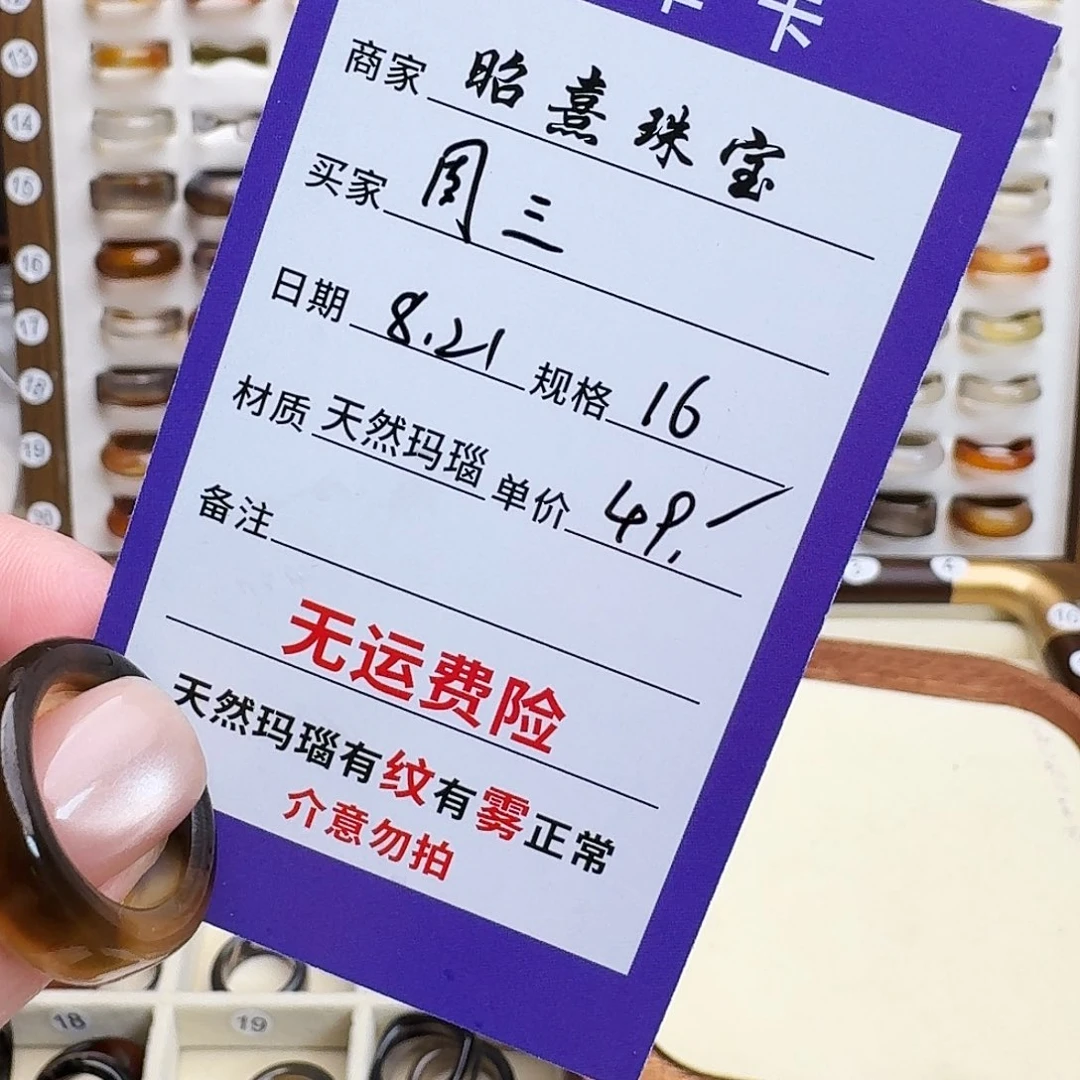 卡
商家 昭熹珠宝
买家 周三
日期 8.21 规格 16
材质 天然玛瑙 单价 49.
备注
无运费险
天然玛瑙有纹有雾正常
介意勿拍
13
14
15
16
17
18
19
20
18
19